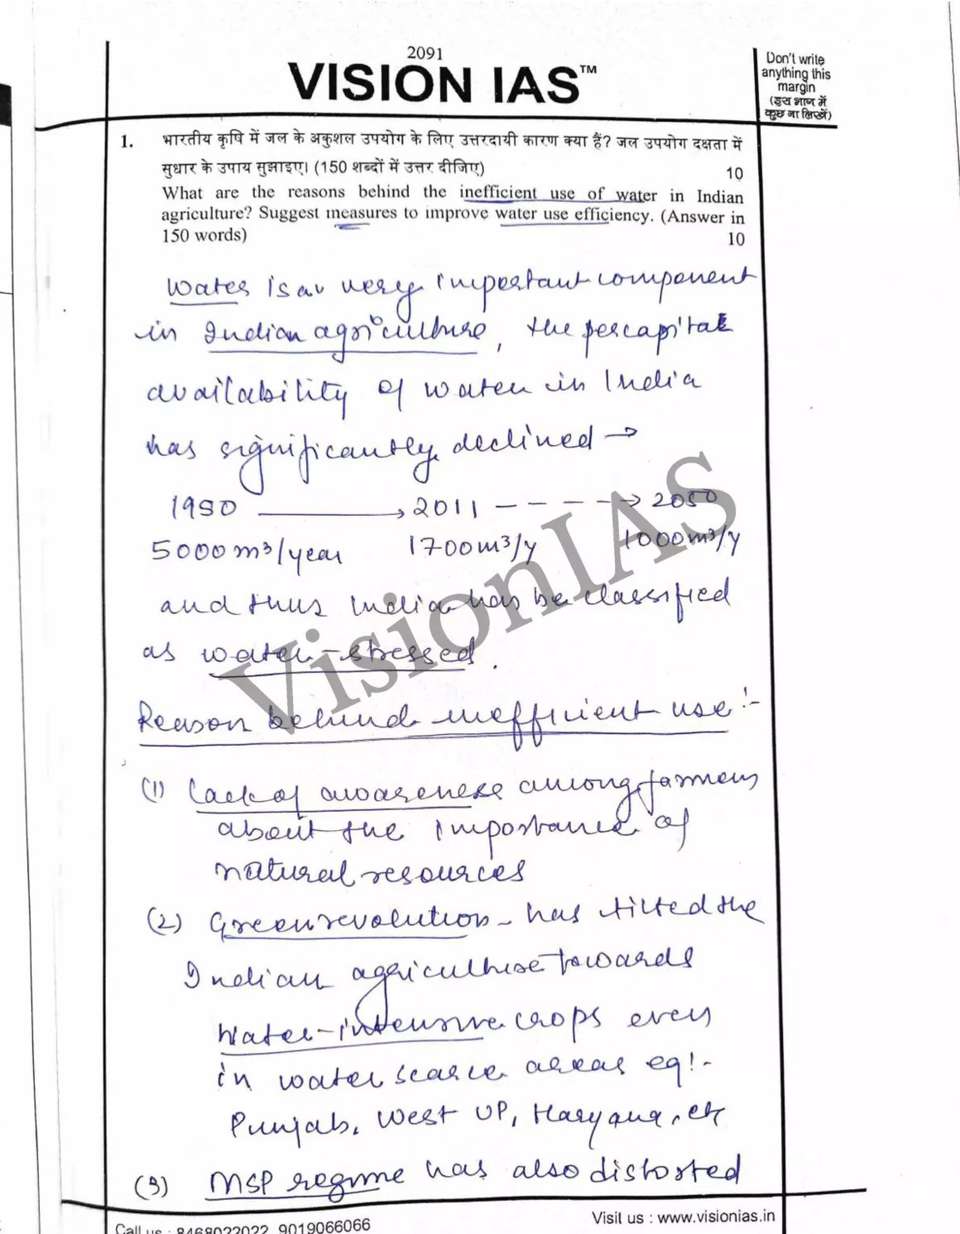 2091
VISION IAS™
Don't write
anything this
margin
(इस भाग में
कुछ ना लिखें)
1. भारतीय कृषि में जल के अकुशल उपयोग के लिए उत्तरदायी कारण क्या हैं? जल उपयोग दक्षता में
सुधार के उपाय सुझाइए। (150 शब्दों में उत्तर दीजिए) 10
What are the reasons behind the inefficient use of water in Indian
agriculture? Suggest measures to improve water use efficiency. (Answer in
150 words) 10
Water is a very important component
in Indian agriculture, the percapital
availability of water in India
has significantly declined →
1950 → 2011 ----→ 2050
5000 m³/year 1700 m³/y 1000 m³/y
and thus India has be classified
as water-stressed.
Reason behind inefficient use :-
(1) Lack of awareness among farmers
about the importance of
natural resources
(2) Green revolution - has tilted the
Indian agriculture towards
water-intensive crops even
in water scarce areas eg:-
Punjab, West UP, Haryana, etc
(3) MSP regime has also distorted
VisionIAS
Call us : 8468022022, 9019066066
Visit us : www.visionias.in